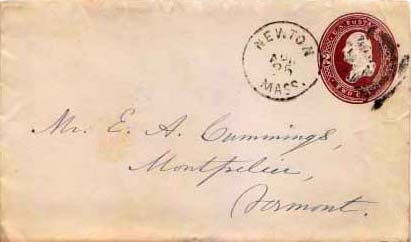 NEWTON
APR
25
MASS.
U.S. POSTAGE
TWO
Mr. E. A. Cummings,
Montpelier,
Vermont.